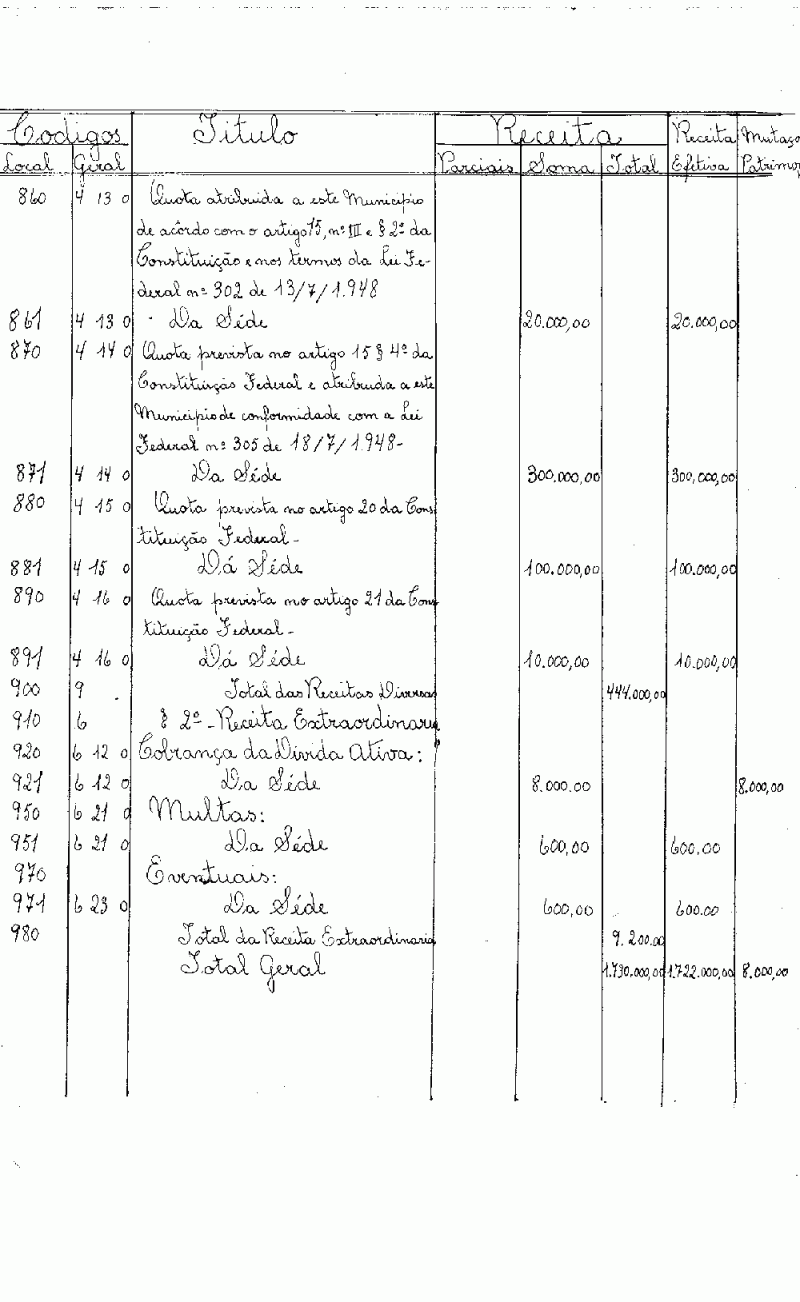 Codigos Titulo Receita Receita Mutaço
Local Geral Parciais Soma Total Efetiva Patrimo
860 4 13 0 Quota atribuida a este Municipio
de acôrdo com o artigo 15, nº III e § 2º da
Constituição e nos termos da Lei Fe-
deral nº 302 de 13/7/1.948
861 4 13 0 Da Séde 20.000,00 20.000,00
870 4 14 0 Quota prevista no artigo 15 § 4º da
Constituição Federal e atribuida a este
Municipio de conformidade com a Lei
Federal nº 305 de 18/7/1.948-
871 4 14 0 Da Séde 300.000,00 300.000,00
880 4 15 0 Quota prevista no artigo 20 da Cons
tituição Federal-
881 4 15 0 Dá Séde 100.000,00 100.000,00
890 4 16 0 Quota prevista no artigo 21 da Cons
tituição Federal-
891 4 16 0 Dá Séde 10.000,00 10.000,00
900 9 Total das Receitas Diversas 444.000,00
910 6 § 2º-Receita Extraordinaria
920 6 12 0 Cobrança da Divida Ativa:
921 6 12 0 Da Séde 8.000.00 8.000,00
950 6 21 0 Multas:
951 6 21 0 Da Séde 600,00 600.00
970 Eventuais:
971 6 23 0 Da Séde 600,00 600.00
980 Total da Receita Extraordinaria 9.200.00
Total Geral 1.730.000,00 1.722.000,00 8.000,00